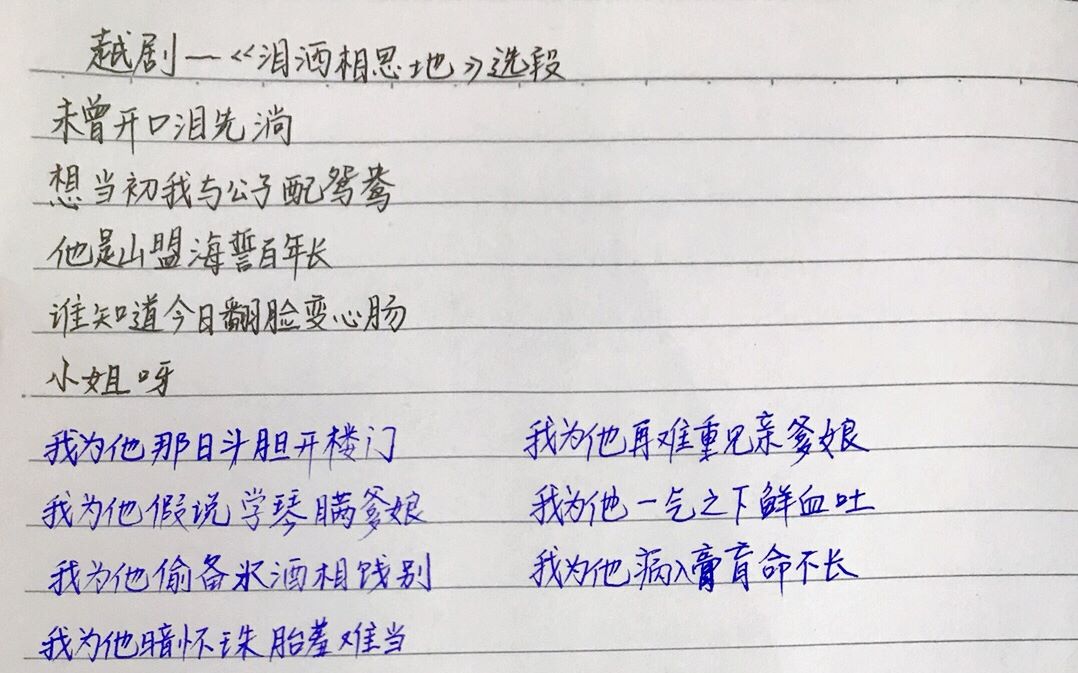 越剧—《泪洒相思地》选段
未曾开口泪先淌
想当初我与公子配鸳鸯
他是山盟海誓百年长
谁知道今日翻脸变心肠
小姐呀
我为他那日斗胆开楼门
我为他假说学琴瞒爹娘
我为他偷备水酒相饯别
我为他暗怀珠胎羞难当
我为他再难重见亲爹娘
我为他一气之下鲜血吐
我为他病入膏肓命不长